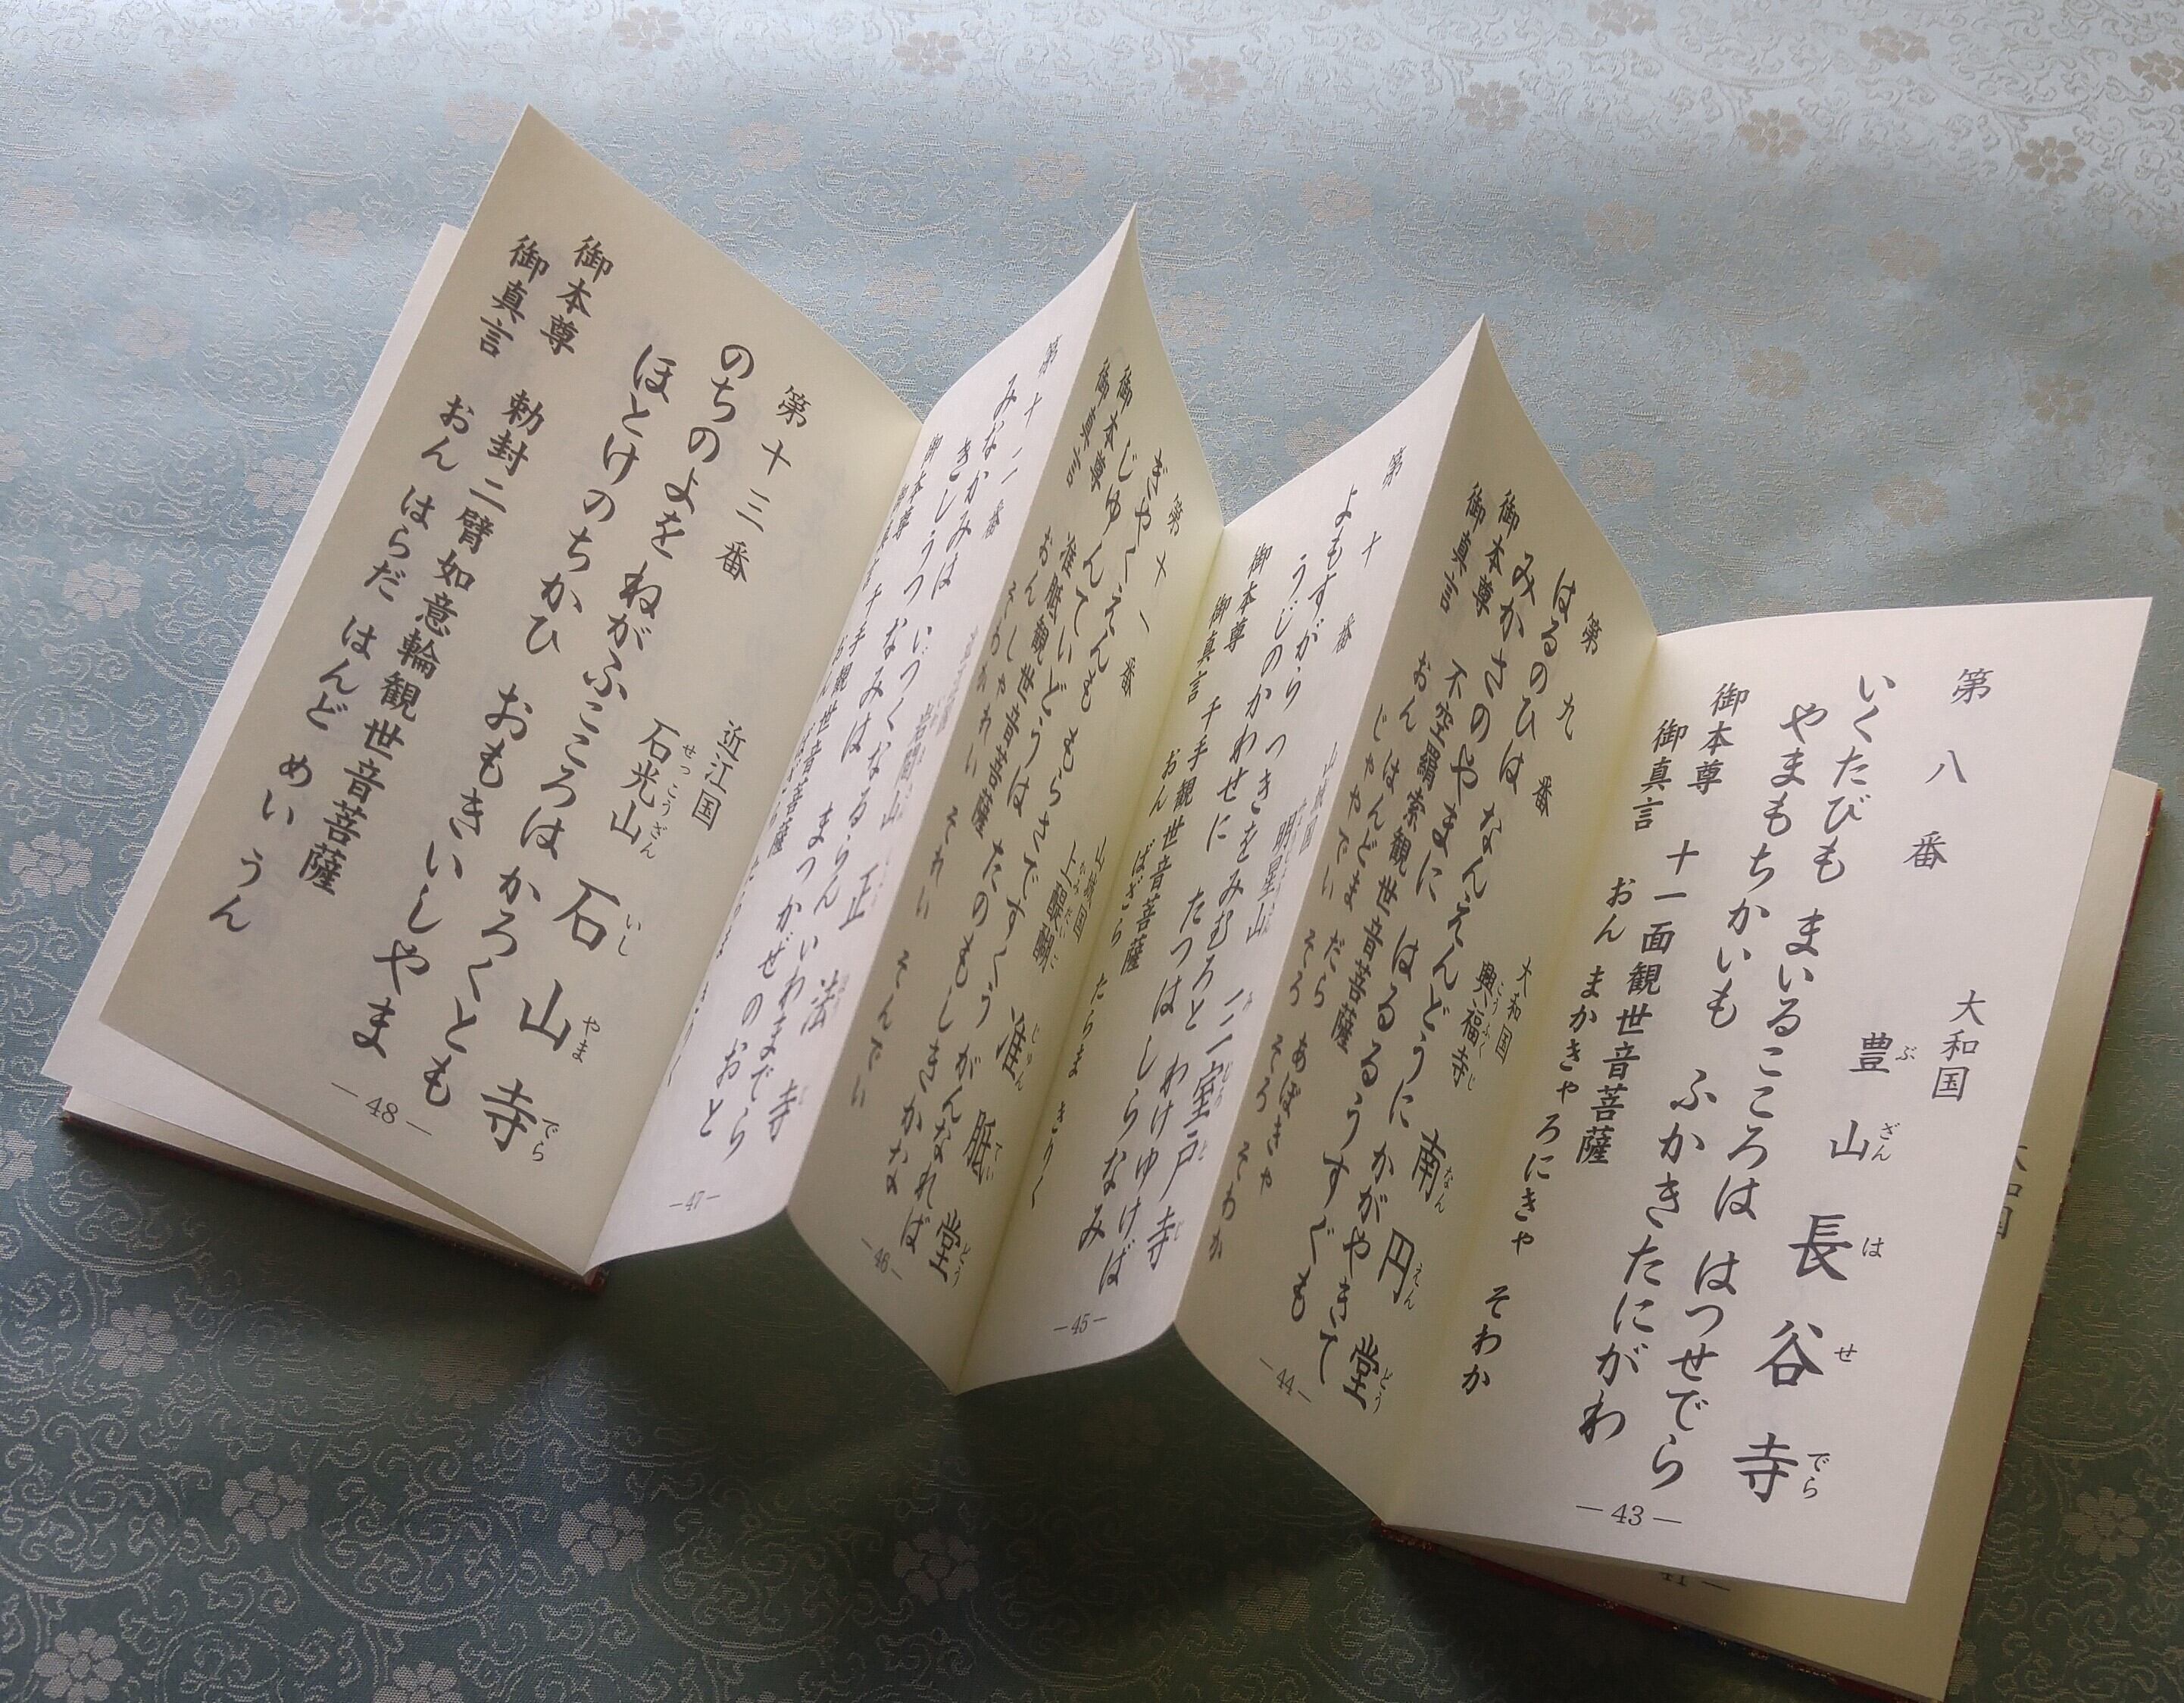 第八番
大和国
豊山 長谷寺
ぶざん はせでら
いくたびも まいるこころは はつせでら
やまもちかいも ふかきたにがわ
御本尊 十一面観世音菩薩
御真言 おん まかきゃろにきゃ そわか
―43―
第九番
大和国
興福寺 南円堂
こうふくじ なんえんどう
はるのひは なんえんどうに かがやきて
みかさのやまに はるるうすぐも
御本尊 不空羂索観世音菩薩
御真言 おん はんどま だら あぼきゃ
じゃやでい そろ そろ そわか
―44―
第十番
山城国
明星山 三室戸寺
よもすがら つきをみむろと わけゆけば
うじのかわせに たつはしらなみ
御本尊 千手観世音菩薩
御真言 おん ばざら たらま きりく
―45―
第十一番
山城国
上醍醐 准胝堂
じゅん てい どう
ぎやくえんも もらさですくう がんなれば
じゅんていどうは たのもしきかな
御本尊 准胝観世音菩薩
御真言 おん しゃれい それい そんでい
そわか
―46―
第十二番
岩間山 正法寺
みなかみは いづくなるらん いわまでら
きしうつなみは まつかぜのおと
御本尊 千手観世音菩薩
御真言 おん ばざら たらま きりく
―47―
第十三番
近江国
石光山 石山寺
せっこうざん いしやまでら
のちのよを ねがふこころは かろくとも
ほとけのちかひ おもきいしやま
御本尊 勅封二臂如意輪観世音菩薩
御真言 おん はらだ はんどめい うん
―48―